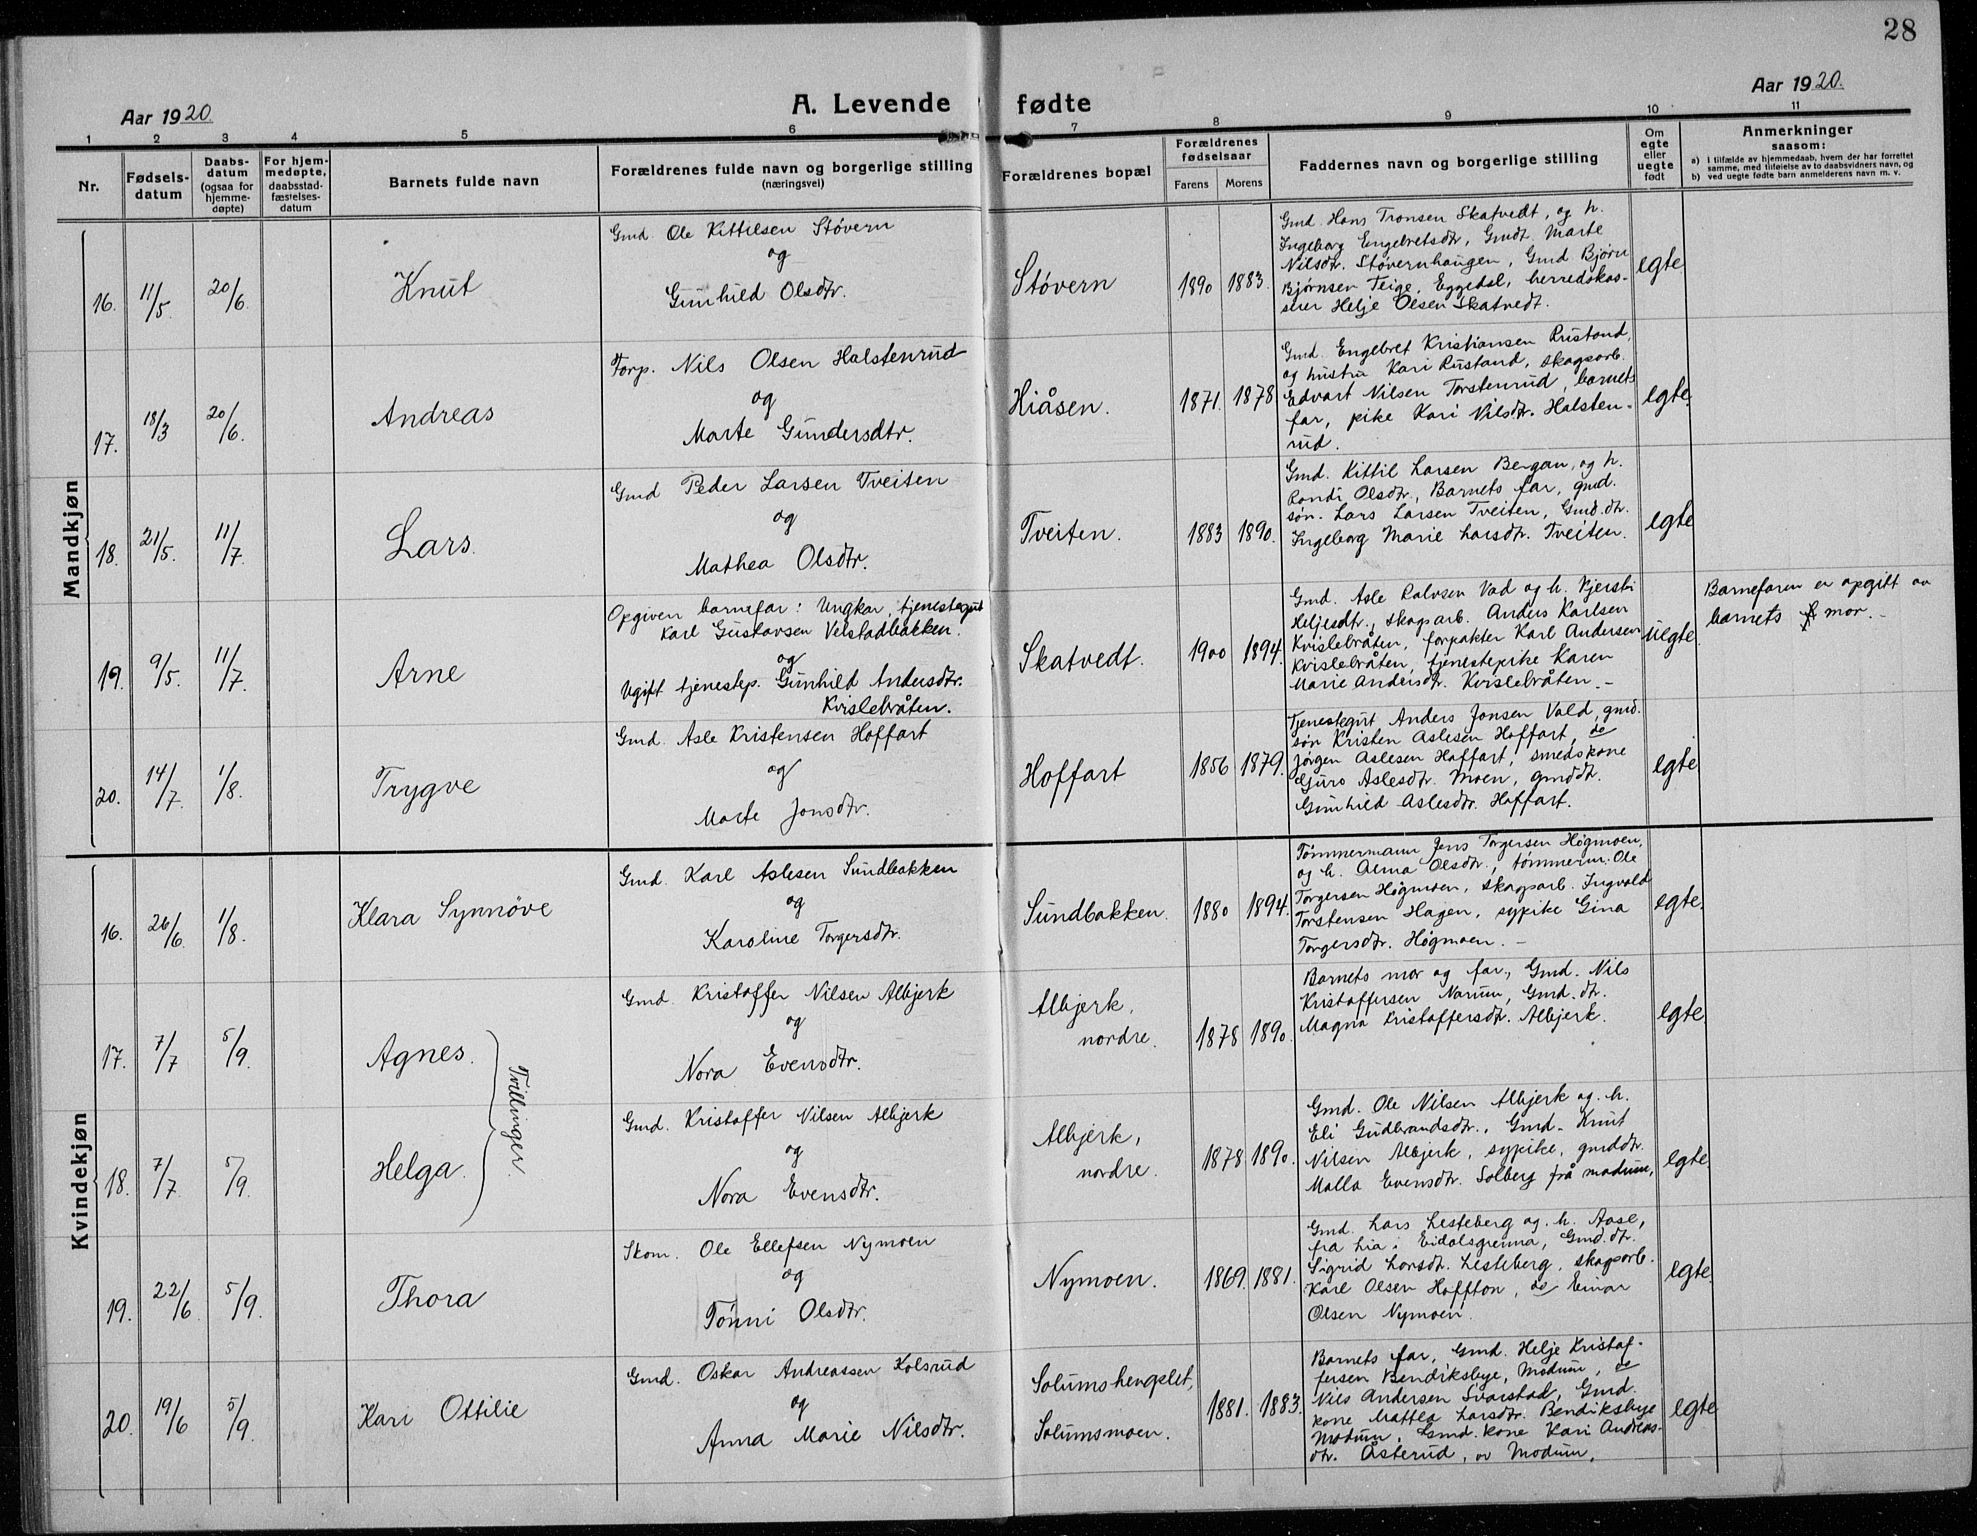 28
Aar 1920.
A. Levende fødte
Aar 1920.
1 2 3 4 5 6 7 8 9 10 11
Nr.
Fødsels-
datum
Daabs-
datum
(ogsaa for
hjemme-
døpte)
For hjem-
medøpte,
daabsstad-
fæstelses-
datum
Barnets fulde navn
Forældrenes fulde navn og borgerlige stilling
(næringsvei)
Forældrenes bopæl
Forældrenes
fødselsaar
Farens Morens
Faddernes navn og borgerlige stilling
Om
egte
eller
uegte
født
Anmerkninger
saasom:
a) i tilfælde av hjemmedaab, hvem der har forrettet
samme, med tilføielse av to daabsvidners navn, og
b) ved uegte fødte barn anmelderens navn m. v.
Mandkjøn
16. 11/5. 20/6. Knut
Gmd. Ole Kittilsen Støvern
og
Gunhild Olsdtr.
Støvern 1890 1883.
Gmd. Hans Tronsen Skatvedt, og h.
Ingeborg Engebretsdtr, Gmdt. Marte
Nilsdtr. Støvernhaugen, Gmd Bjørn
Bjørnsen Teige, Eggedal, herredskas-
serer Helje Olsen Skatvedt.
egte
17. 18/3 20/6. Andreas
Forp. Nils Olsen Halstenrud
og
Marte Gundersdtr.
Hiåsen. 1871. 1878
Gmd. Engebret Kristiansen Rustand,
og hustru Kari Rustand, skogsarb.
Edvart Nilsen Torstenrud, barnets
far, pike Kari Nilsdtr. Halsten-
rud.
egte.
18. 21/5. 11/7. Lars.
Gmd Peder Larsen Tveiten
og
Mathea Olsdtr.
Tveiten. 1883 1890.
Gmd. Kittil Larsen Bergan, og h.
Randi Olsdtr., Barnets far, gmd.
søn. Lars Larsen Tveiten, Gmd.dtr.
Ingeborg Marie Larsdtr. Tveiten.
egte
19. 9/5. 11/7. Arne
Opgiven barnefar: Ungkar, tjenestegut
Karl Gustavsen Velstadbakken.
og
Ugift tjenestep. Gunhild Andersdtr.
Kvislebråten.
Skatvedt. 1900 1894.
Gmd. Asle Valvsen Vad og h. Kjersti
Heljesdtr., skogsarb. Anders Karlsen
Kvislebråten, forpakter Karl Andersen
Kvislebråten, tjenestepike Karen
Marie Andersdtr. Kvislebråten. -
uegte.
Barnefaren er opgitt av
barnets mor. -
20. 14/7. 1/8. Trygve
Gmd. Asle Kristensen Hoffart
og
Marte Jonsdtr.
Hoffart 1856 1879.
Tjenestegut Anders Jonsen Vald, gmd.
søn Kristen Aslesen Hoffart, do
Jørgen Aslesen Hoffart, smedskone
Guro Aslesdtr. Moen, gmddtr.
Gunhild Aslesdtr. Hoffart.
egte
Kvindekjøn
16. 26/6. 1/8. Klara Synnøve
Gmd. Karl Aslesen Sundbakken
og
Karoline Torgersdtr.
Sundbakken. 1880 1894.
Tømmermann Jens Torgersen Høgmoen,
og h. Alma Olsdtr., tømmerm. Ole
Torgersen Høgmoen, skogsarb. Ingvald
Torstensen Hagen, sypike Gina
Torgersdtr. Høgmoen. -
egte.
17. 7/7 5/9. Agnes.
Tvillinger
Gmd. Kristoffer Nilsen Albjerk
og
Nora Evensdtr.
Albjerk,
nordre. 1878 1890.
Barnets mor og far, Gmd. Nils
Kristoffersen Narum, Gmd. dtr.
Magna Kristoffersdtr. Albjerk.
egte.
18. 7/7 5/9. Helga.
Gmd. Kristoffer Nilsen Albjerk
og
Nora Evensdtr.
Albjerk,
nordre. 1878 1890.
Gmd. Ole Nilsen Albjerk og h.
Eli Gudbrandsdtr., Gmd. Knut
Nilsen Albjerk, sypike, gmddtr.
Malla Evensdtr. Solberg frå Modum,
egte.
19. 22/6 5/9. Thora
Skom. Ole Ellefsen Nymoen
og
Tønni Olsdtr.
Nymoen. 1869. 1881.
Gmd. Lars Lesteberg og h. Aase,
fra Lia i Eidalsgrenna, Gmd.dtr.
Sigrid Larsdtr. Lesteberg, skogsarb.
Karl Olsen Hoffton, do Einar
Olsen Nymoen.
egte.
20. 19/6 5/9. Kari Ottilie
Gmd. Oskar Andreassen Kolsrud
og
Anna Marie Nilsdtr.
Solumshengslet,
Solumsmoen. 1881. 1883.
Barnets far, Gmd. Helje Kristof-
fersen Bendiksbye, Modum, do
Nils Andersen Svarstad, Gmd.
kone Mathea Larsdtr. Bendiksbye
Modum, Gmd. kone Kari Andreas-
dtr. Åsterud, av Modum.
egte